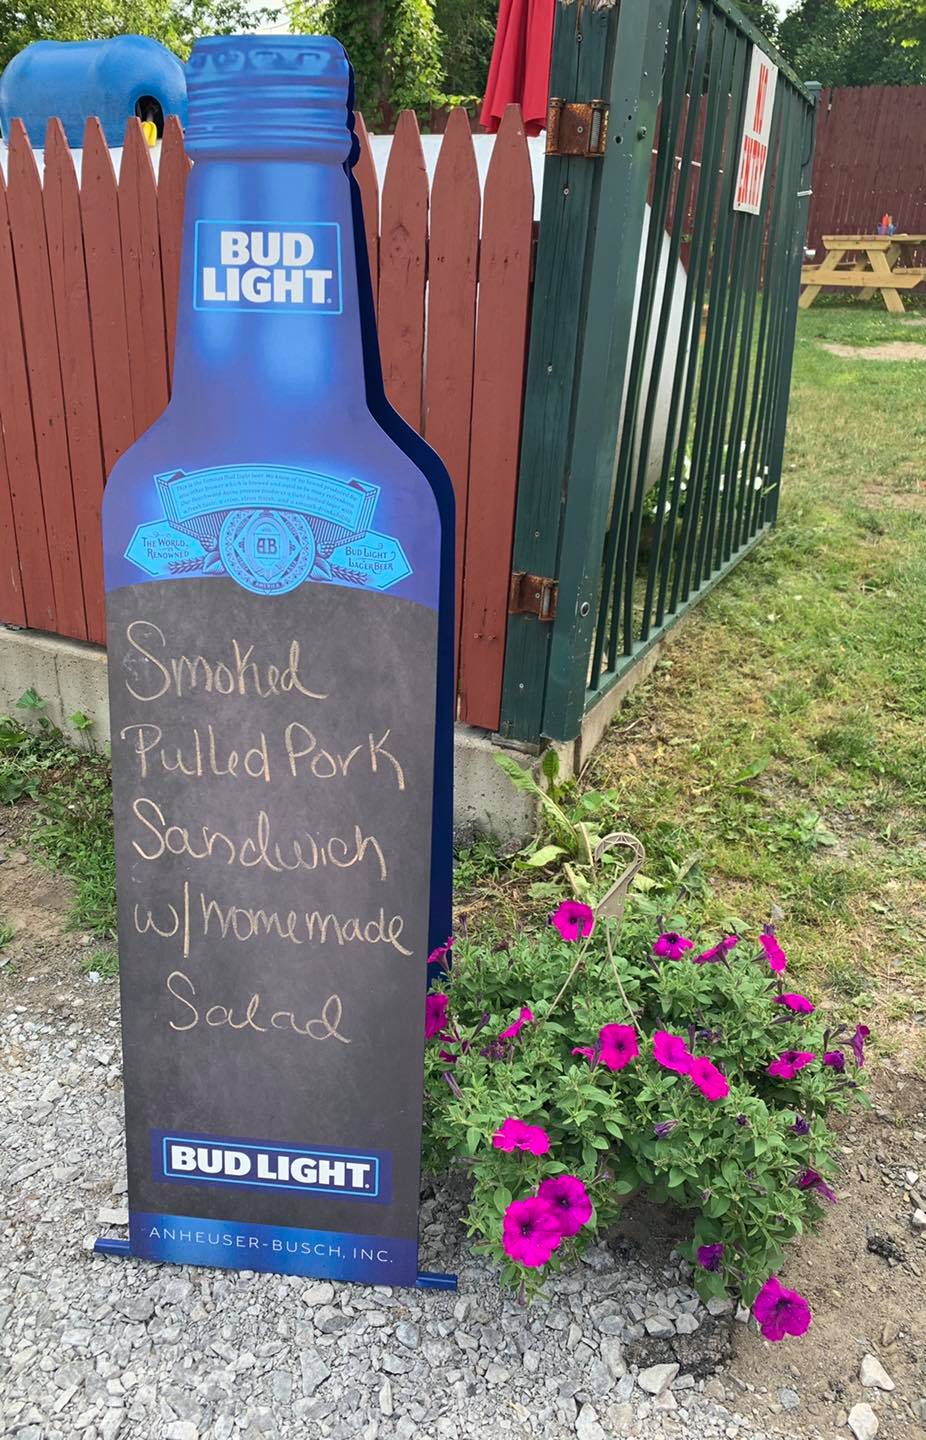 NO
ENTRY
BUD
LIGHT
THE WORLD
RENOWNED
BUD LIGHT
LAGER BEER
AB
AMERICA
Smoked
Pulled Pork
Sandwich
w/ homemade
Salad
BUD LIGHT
ANHEUSER-BUSCH, INC.